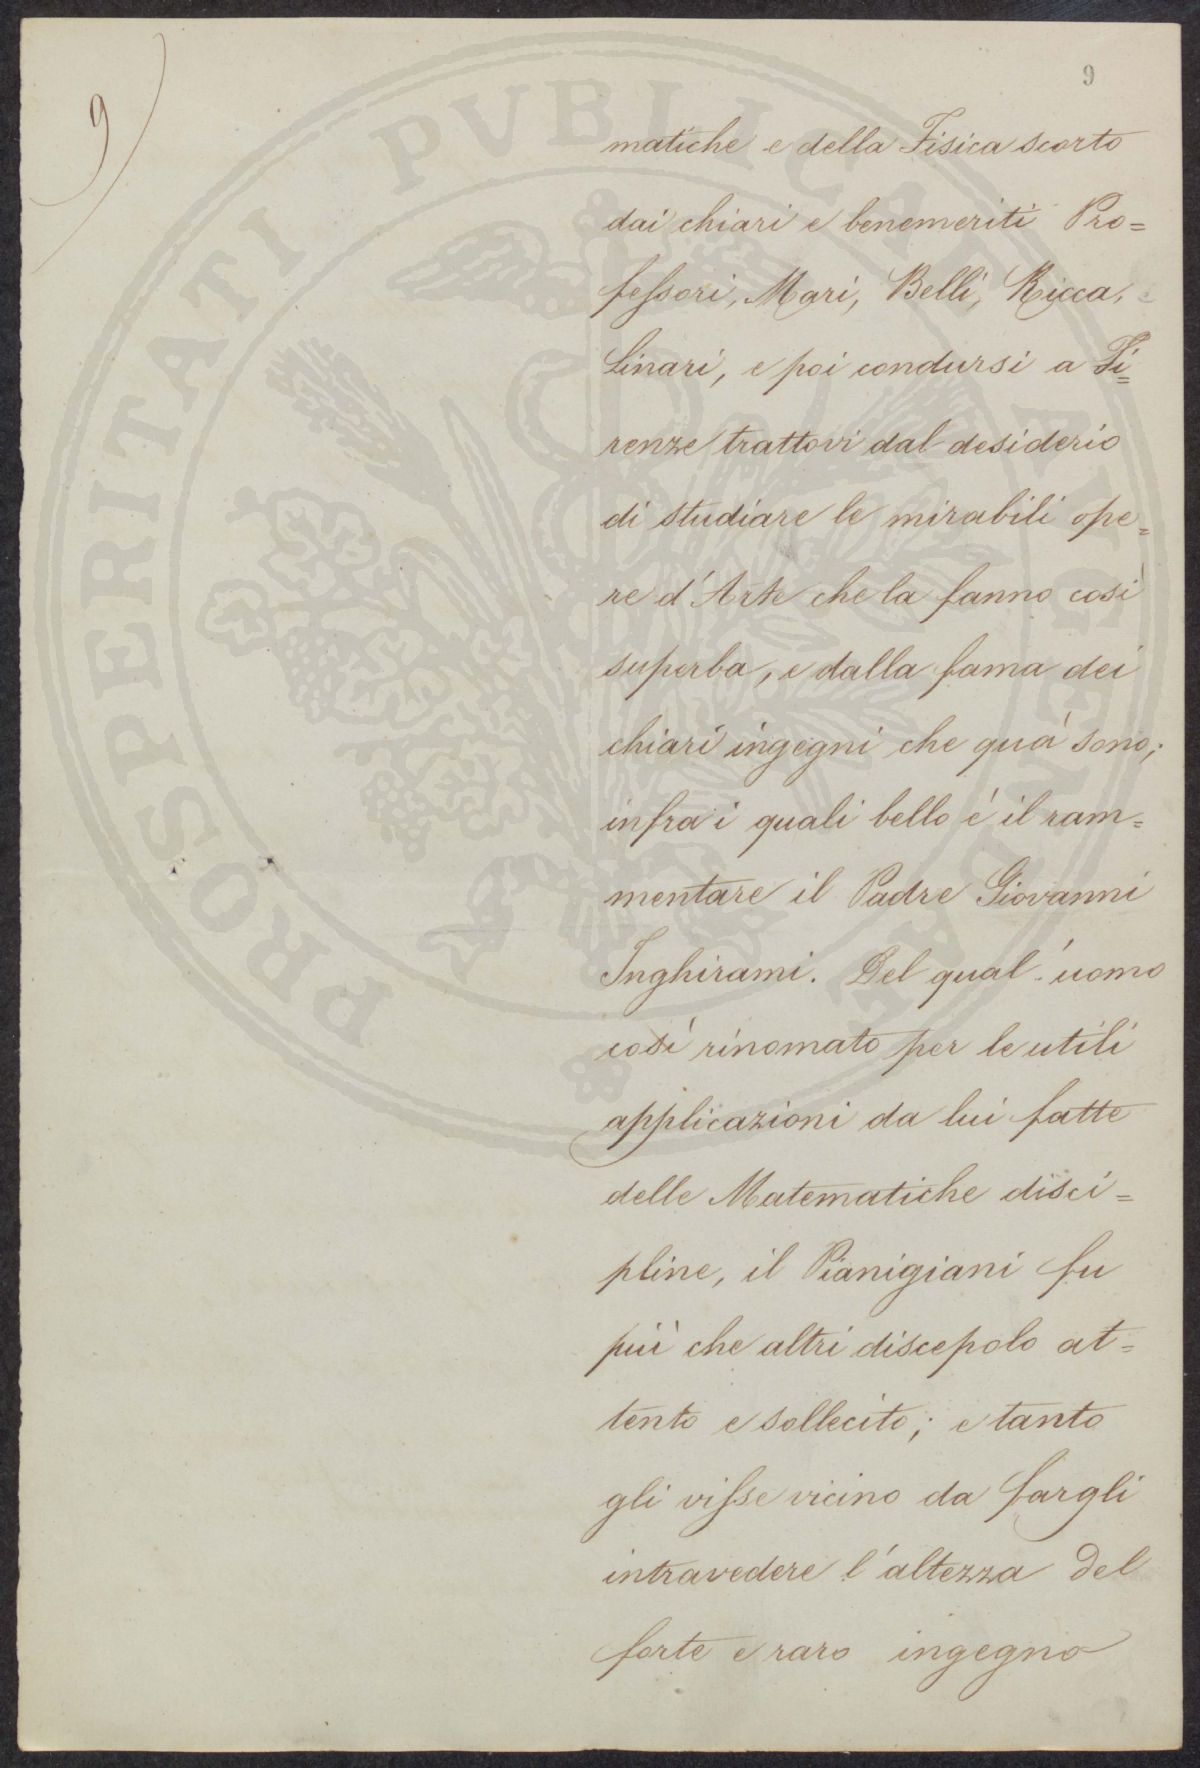 9
9
matiche e della Fisica scorto
dai chiari e benemeriti Pro=
fessori, Mari, Belli, Ricca, e
Linari, e poi condursi a Fi=
renze trattovi dal desiderio
di studiare le mirabili ope=
re d'Arte che la fanno così
superba, e dalla fama dei
chiari ingegni che quà sono;
infra i quali bello é il ram=
mentare il Padre Giovanni
Inghirami. Del qual'uomo
così rinomato per le utili
applicazioni da lui fatte
delle Matematiche disci=
pline, il Pianigiani fu
più che altri discepolo at=
tento e sollecito; e tanto
gli visse vicino da fargli
intravedere l'altezza del
forte e raro ingegno
PROSPERITATI PVBLICAE AVGENDAE